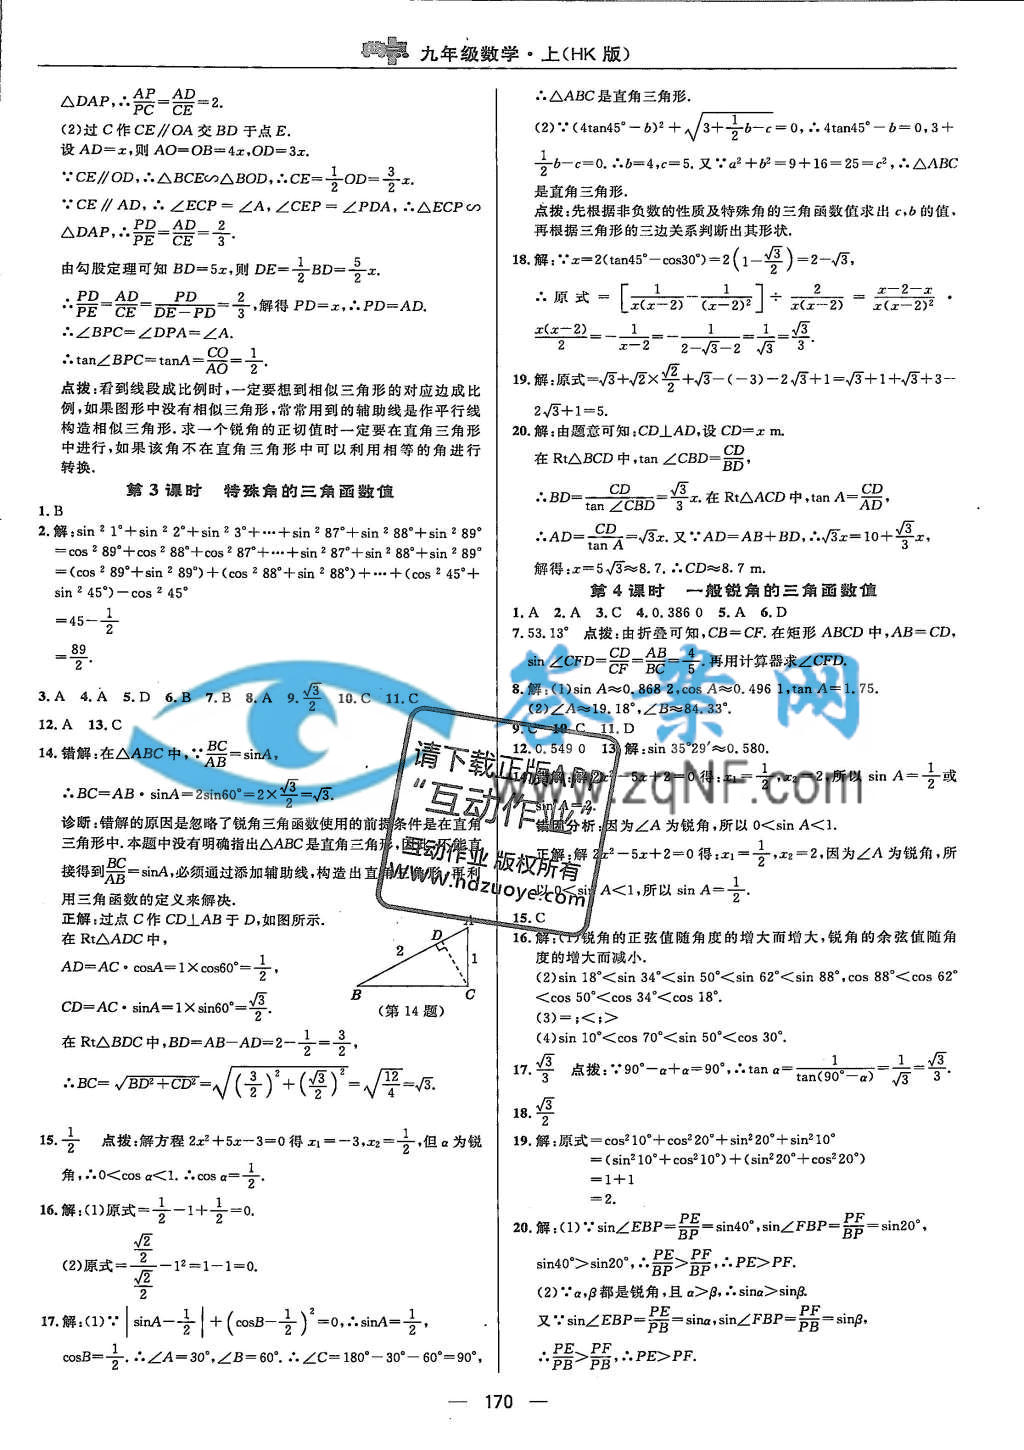 九年级数学·上(HK版)
△DAP,∴AP/PC=AD/CE=2.
(2)过C作CE∥OA交BD于点E.
设AD=x,则AO=OB=4x,OD=3x.
∵CE∥OD,∴△BCE∽△BOD,∴CE=1/2OD=3/2x.
∵CE∥AD,∴∠ECP=∠A,∠CEP=∠PDA,∴△ECP∽
△DAP,∴PD/PE=AD/CE=2/3.
由勾股定理可知BD=5x,则DE=1/2BD=5/2x.
∴PD/PE=AD/CE=PD/(DE-PD)=2/3,解得PD=x,∴PD=AD.
∴∠BPC=∠DPA=∠A.
∴tan∠BPC=tanA=CO/AO=1/2.
点拨:看到线段成比例时,一定要想到相似三角形的对应边成比
例,如果图形中没有相似三角形,常常用到的辅助线是作平行线
构造相似三角形.求一个锐角的正切值时一定要在直角三角形
中进行,如果该角不在直角三角形中可以利用相等的角进行
转换.
第3课时 特殊角的三角函数值
1.B
2.解:sin²1°+sin²2°+sin²3°+…+sin²87°+sin²88°+sin²89°
=cos²89°+cos²88°+cos²87°+…+sin²87°+sin²88°+sin²89°
=(cos²89°+sin²89°)+(cos²88°+sin²88°)+…+(cos²45°+
sin²45°)-cos²45°
=45-1/2
=89/2.
3.A 4.A 5.D 6.B 7.B 8.A 9.√3/2 10.C 11.C
12.A 13.C
14.错解:在△ABC中,∵BC/AB=sinA,
∴BC=AB·sinA=2sin60°=2×√3/2=√3.
诊断:错解的原因是忽略了锐角三角函数使用的前提条件是在直角
三角形中.本题中没有明确指出△ABC是直角三角形,因此不能直
接得到BC/AB=sinA,必须通过添加辅助线,构造出直角三角形,再利
用三角函数的定义来解决.
正解:过点C作CD⊥AB于D,如图所示.
在Rt△ADC中,
AD=AC·cosA=1×cos60°=1/2,
CD=AC·sinA=1×sin60°=√3/2.
A
D
2
1
B
C
(第14题)
在Rt△BDC中,BD=AB-AD=2-1/2=3/2,
∴BC=√(BD²+CD²)=√((3/2)²+(√3/2)²)=√(12/4)=√3.
15.1/2 点拨:解方程2x²+5x-3=0得x₁=-3,x₂=1/2,但α为锐
角,∴0<cos α<1.∴cos α=1/2.
16.解:(1)原式=1/2-1+1/2=0.
(2)原式=(√2/2)/(√2/2)-1²=1-1=0.
17.解:(1)∵|sinA-1/2|+(cosB-1/2)²=0,∴sinA=1/2,
cosB=1/2.∴∠A=30°,∠B=60°.∴∠C=180°-30°-60°=90°,
∴△ABC是直角三角形.
(2)∵(4tan45°-b)²+√(3+1/2b-c)=0,∴4tan45°-b=0,3+
1/2b-c=0.∴b=4,c=5.又∵a²+b²=9+16=25=c²,∴△ABC
是直角三角形.
点拨:先根据非负数的性质及特殊角的三角函数值求出c,b的值,
再根据三角形的三边关系判断出其形状.
18.解:∵x=2(tan45°-cos30°)=2(1-√3/2)=2-√3,
∴原式=[1/(x(x-2))-1/(x-2)²]÷2/(x(x-2))=(x-2-x)/(x(x-2)²)·
x(x-2)/2=-1/(x-2)=-1/(2-√3-2)=1/√3=√3/3.
19.解:原式=√3+√2×√2/2+√3-(-3)-2√3+1=√3+1+√3+3-
2√3+1=5.
20.解:由题意可知:CD⊥AD,设CD=x m.
在Rt△BCD中,tan∠CBD=CD/BD,
∴BD=CD/tan∠CBD=√3/3x.在Rt△ACD中,tan A=CD/AD,
∴AD=CD/tan A=√3x.又∵AD=AB+BD,∴√3x=10+√3/3x,
解得:x=5√3≈8.7.∴CD≈8.7 m.
第4课时 一般锐角的三角函数值
1.A 2.A 3.C 4.0.386 0 5.A 6.D
7.53.13° 点拨:由折叠可知,CB=CF.在矩形ABCD中,AB=CD,
sin∠CFD=CD/CF=AB/BC=4/5.再用计算器求∠CFD.
8.解:(1)sin A≈0.868 2,cos A≈0.496 1,tan A=1.75.
(2)∠A≈19.18°,∠B≈84.33°.
9.C 10.C 11.D
12.0.549 0 13.解:sin 35°29′≈0.580.
14.错解:解2x²-5x+2=0得:x₁=1/2,x₂=2,所以sin A=1/2或
sin A=2.
错因分析:因为∠A为锐角,所以0<sin A<1.
正解:解2x²-5x+2=0得:x₁=1/2,x₂=2,因为∠A为锐角,所
以0<sin A<1,所以sin A=1/2.
15.C
16.解:(1)锐角的正弦值随角度的增大而增大,锐角的余弦值随角
度的增大而减小.
(2)sin 18°<sin 34°<sin 50°<sin 62°<sin 88°,cos 88°<cos 62°
<cos 50°<cos 34°<cos 18°.
(3)=;<;>
(4)sin 10°<cos 70°<sin 50°<cos 30°.
17.√3/3 点拨:∵90°-α+α=90°,∴tan α=1/tan(90°-α)=1/√3=√3/3.
18.√3/2
19.解:原式=cos²10°+cos²20°+sin²20°+sin²10°
=(sin²10°+cos²10°)+(sin²20°+cos²20°)
=1+1
=2.
20.解:(1)∵sin∠EBP=PE/BP=sin40°,sin∠FBP=PF/BP=sin20°,
sin40°>sin20°,∴PE/BP>PF/BP,∴PE>PF.
(2)∵α,β都是锐角,且α>β,∴sinα>sinβ.
又∵sin∠EBP=PE/PB=sinα,sin∠FBP=PF/PB=sinβ,
∴PE/PB>PF/PB,∴PE>PF.
— 170 —
答案网
www.zqNF.com
请下载正版APP
“互动作业”
互动作业 版权所有
www.hdzuoye.com